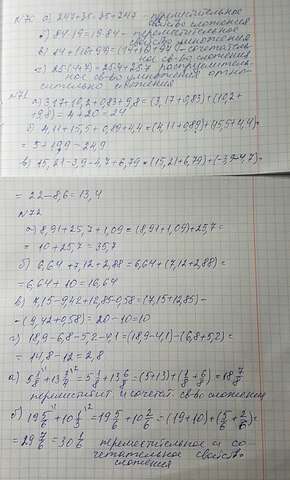 N70. а) 247+35=35+247 - переместительное
св-во сложения
б) 84·19=19·84 - переместительное
св-во умножения
сочетатель
ное св-во сложения
распределитель
ное св-во умножения относи-
тельно сложения
N71
а) 3,17+10,2+0,83+9,8=(3,17+0,83)+(10,2+
+9,8)=4+20=24
б) 4,11+15,5+0,89+4,4=(4,11+0,89)+(15,5+4,4)=
=5+19,9=24,9
в) 15,21-3,9-4,7+6,79=(15,21+6,79)+(-3,9-4,7)=
=22-8,6=13,4
N72
а) 8,91+25,7+1,09=(8,91+1,09)+25,7=
=10+25,7=35,7
б) 6,64+7,12+2,88=6,64+(7,12+2,88)=
=6,64+10=16,64
в) 7,15-9,42+12,85-0,58=(7,15+12,85)-
-(9,42+0,58)=20-10=10
г) 18,9-6,8-5,2-4,1=(18,9-4,1)-(6,8+5,2)=
=14,8-12=2,8
а) 5 1/8+13 3/4=5 1/8+13 6/8=(5+13)+(1/8+6/8)=18 7/8
переместит. и сочетат. св-во сложения
б) 19 5/6+10 1/3=19 5/6+10 2/6=(19+10)+(5/6+2/6)=
=29 7/6=30 1/6 переместительное и со-
четательное свойство
сложения